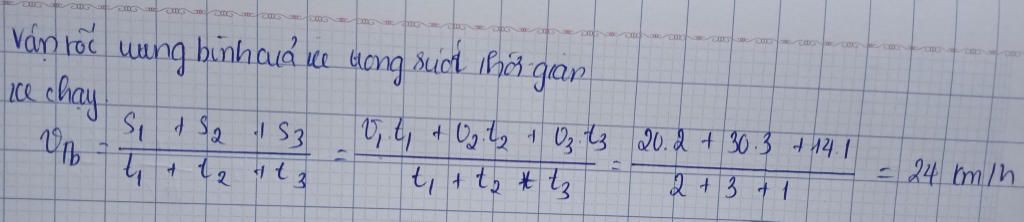 Vận tốc trung bình của xe trong suốt thời gian
xe chạy
v_tb = (s₁ + s₂ + s₃)/(t₁ + t₂ + t₃) = (v₁.t₁ + v₂.t₂ + v₃.t₃)/(t₁ + t₂ + t₃) = (20.2 + 30.3 + 14.1)/(2 + 3 + 1) = 24 km/h